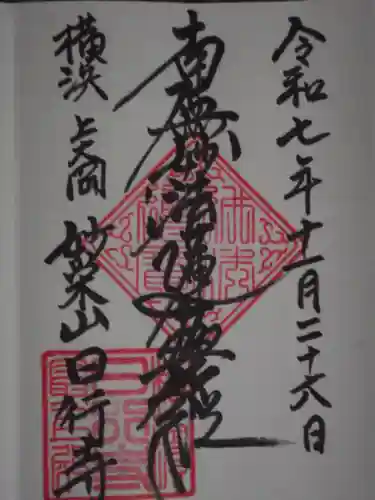 令和七年十一月二十六日
南無妙法蓮華経
横浜 上大岡 妙栄山 日行寺